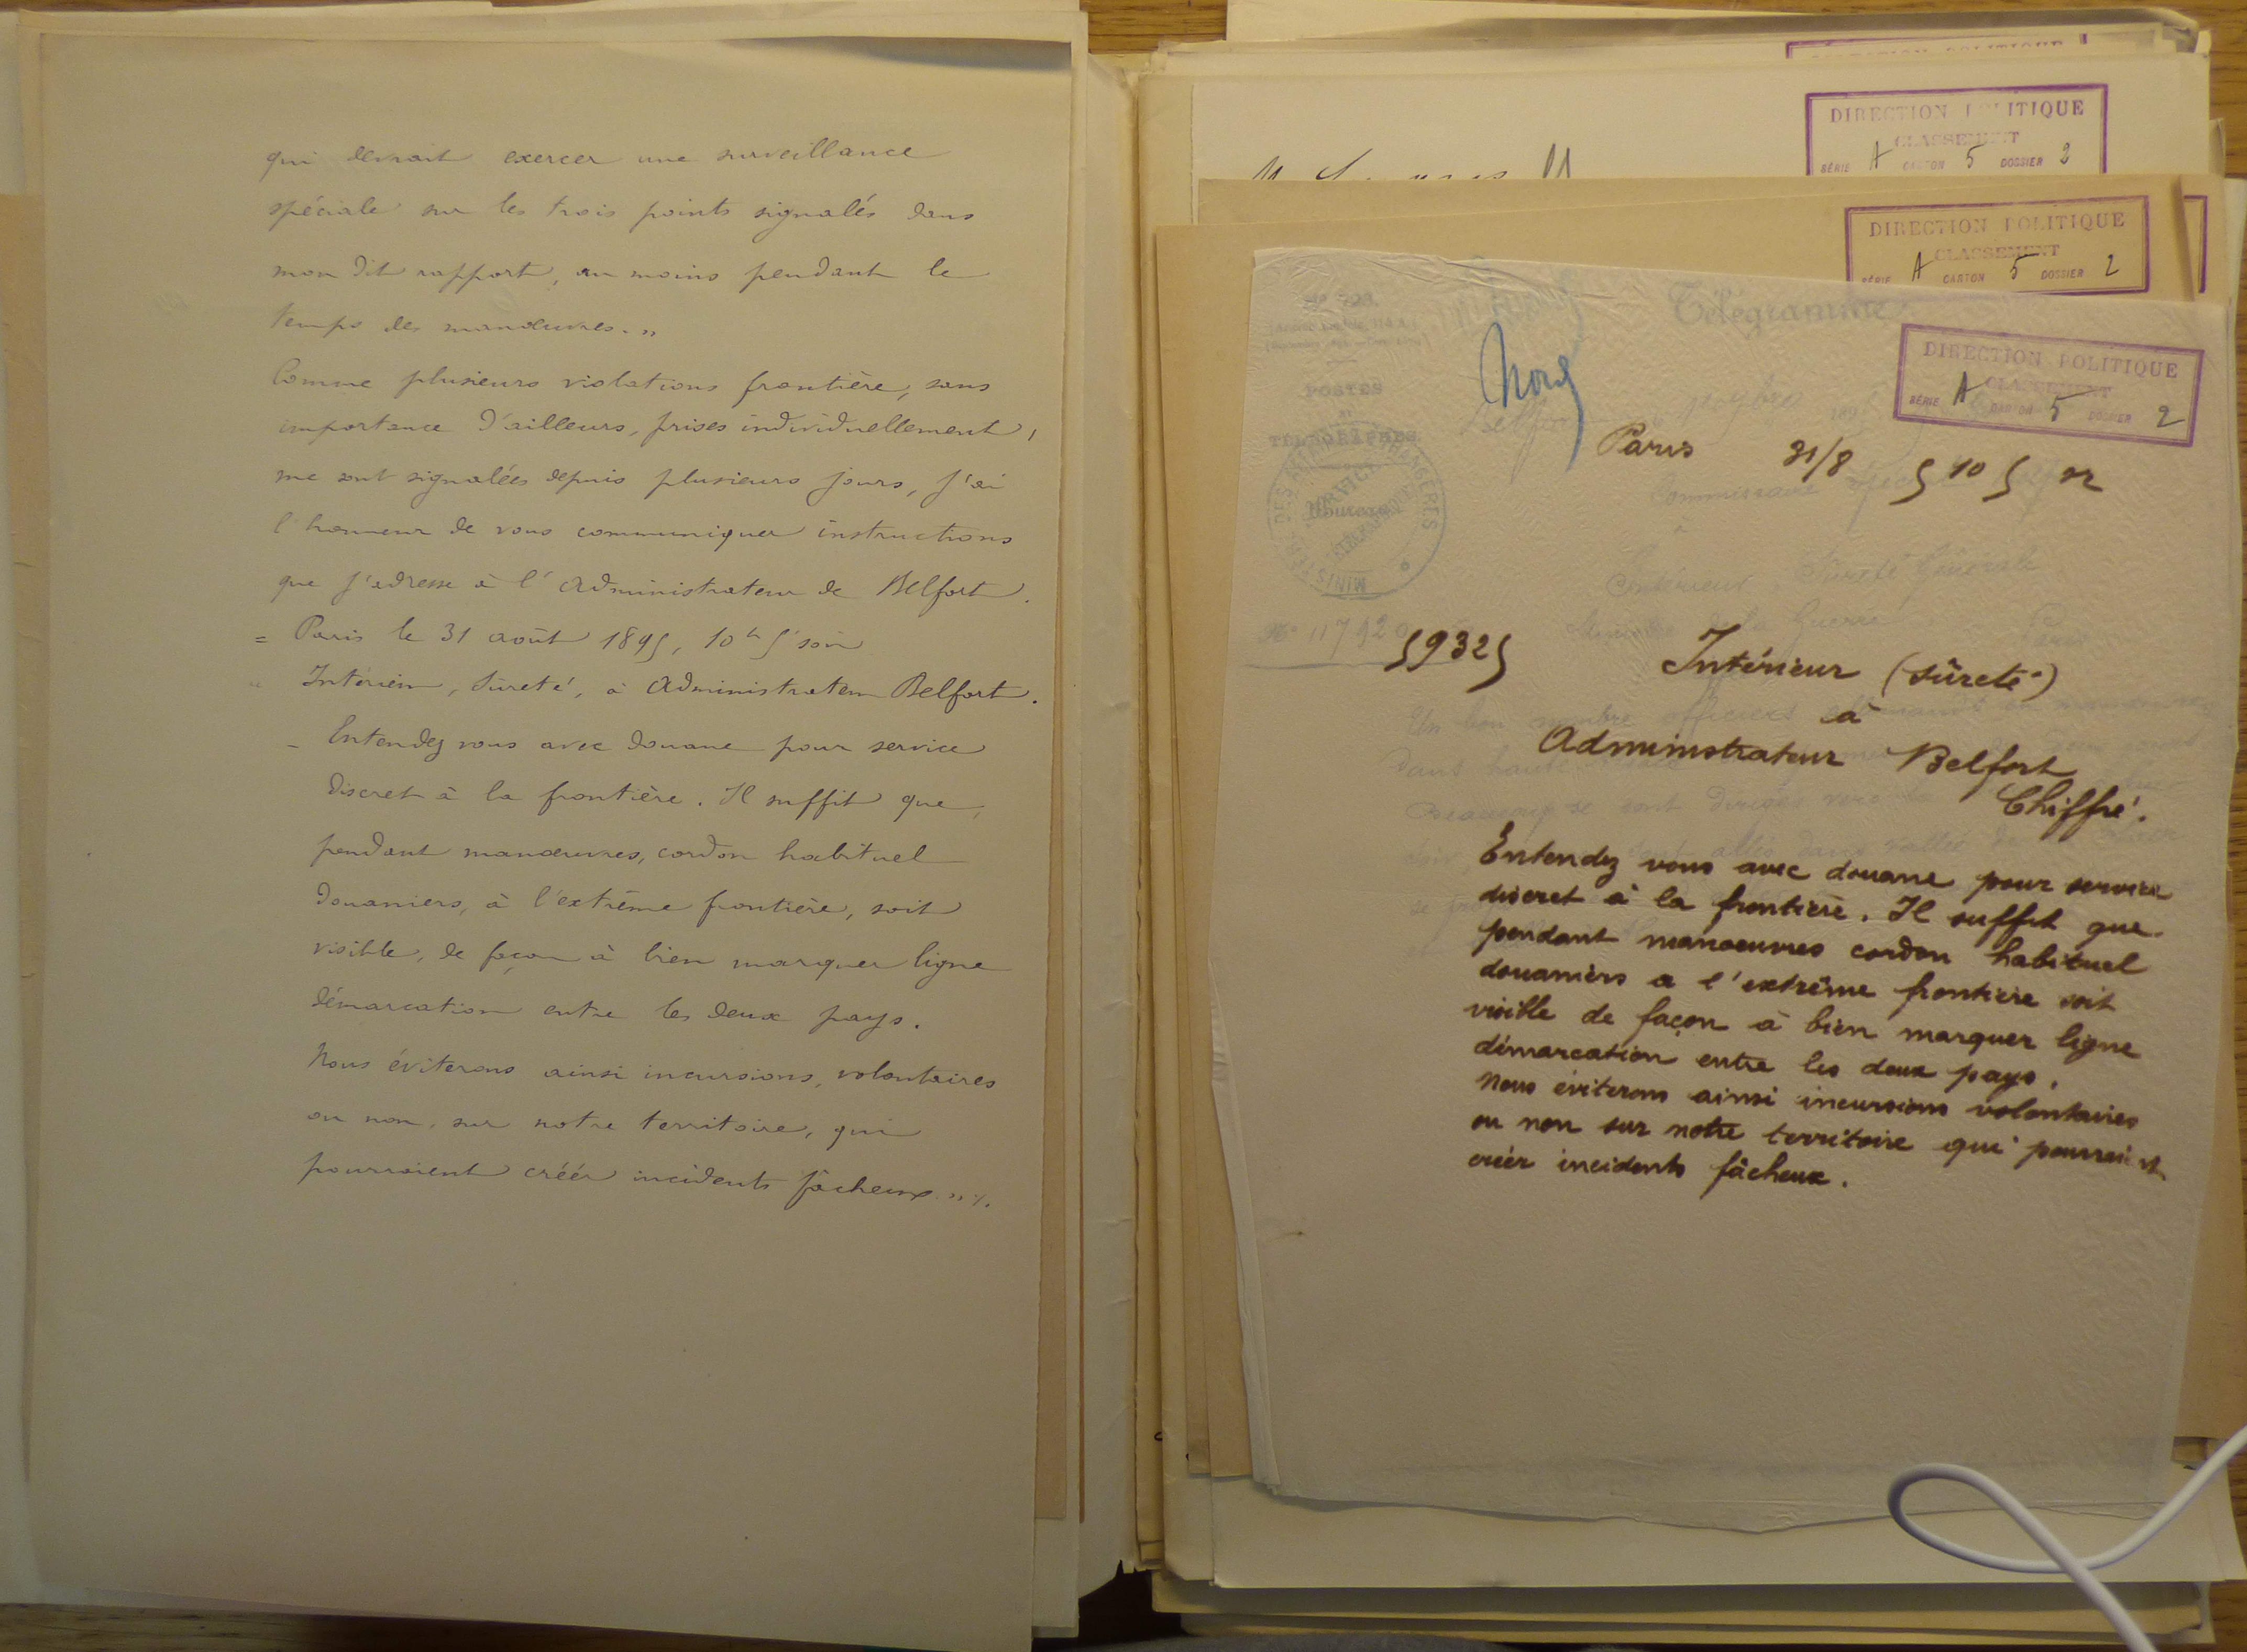 qui devrait exercer une surveillance
spéciale sur les trois points signalés dans
mon dit rapport, au moins pendant le
temps des manœuvres. "
Comme plusieurs violations frontière, sans
importance d'ailleurs, prises individuellement,
me sont signalées depuis plusieurs jours, j'ai
l'honneur de vous communiquer instructions
que j'adresse à l'Administrateur de Belfort.
= Paris le 31 août 1895, 10h 5 soir
Intérieur, Sûreté, à Administrateur Belfort.
_ Entendez vous avec douane pour service
discret à la frontière. Il suffit que,
pendant manœuvres, cordon habituel
douaniers, à l'extrême frontière, soit
visible, de façon à bien marquer ligne
démarcation entre les deux pays.
Nous éviterons ainsi incursions, volontaires
ou non, sur notre territoire, qui
pourraient créér incidents fâcheux. "/.
DIRECTION POLITIQUE
CLASSEMENT
SÉRIE A CARTON 5 DOSSIER 2
DIRECTION POLITIQUE
CLASSEMENT
SÉRIE A CARTON 5 DOSSIER 2
Télégramme
DIRECTION POLITIQUE
CLASSEMENT
SÉRIE A CARTON 5 DOSSIER 2
Nord
POSTES
ET
TÉLÉGRAPHES
Belfort
189
Paris 31/8 5 10 5
Commissaire spécial
à
Intérieur Sûreté Générale
Guerre
Paris
N° 11792
59325
Intérieur (Sûreté)
à
Administrateur Belfort
Chiffré.
Entendez vous avec douane pour service
discret à la frontière. Il suffit que
pendant manoeuvres cordon habituel
douaniers a l'extrême frontière soit
visible de façon à bien marquer ligne
démarcation entre les deux pays.
Nous éviterons ainsi incursions volontaires
ou non sur notre territoire qui pourraient
créer incidents fâcheux.